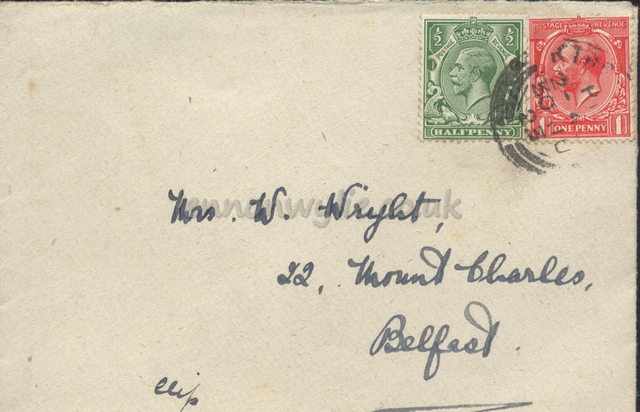 ½ ½
POSTAGE REVENUE
HALFPENNY
POSTAGE REVENUE
1 ONE PENNY 1
Mrs. W. Wright,
22, Mount Charles,
Belfast.